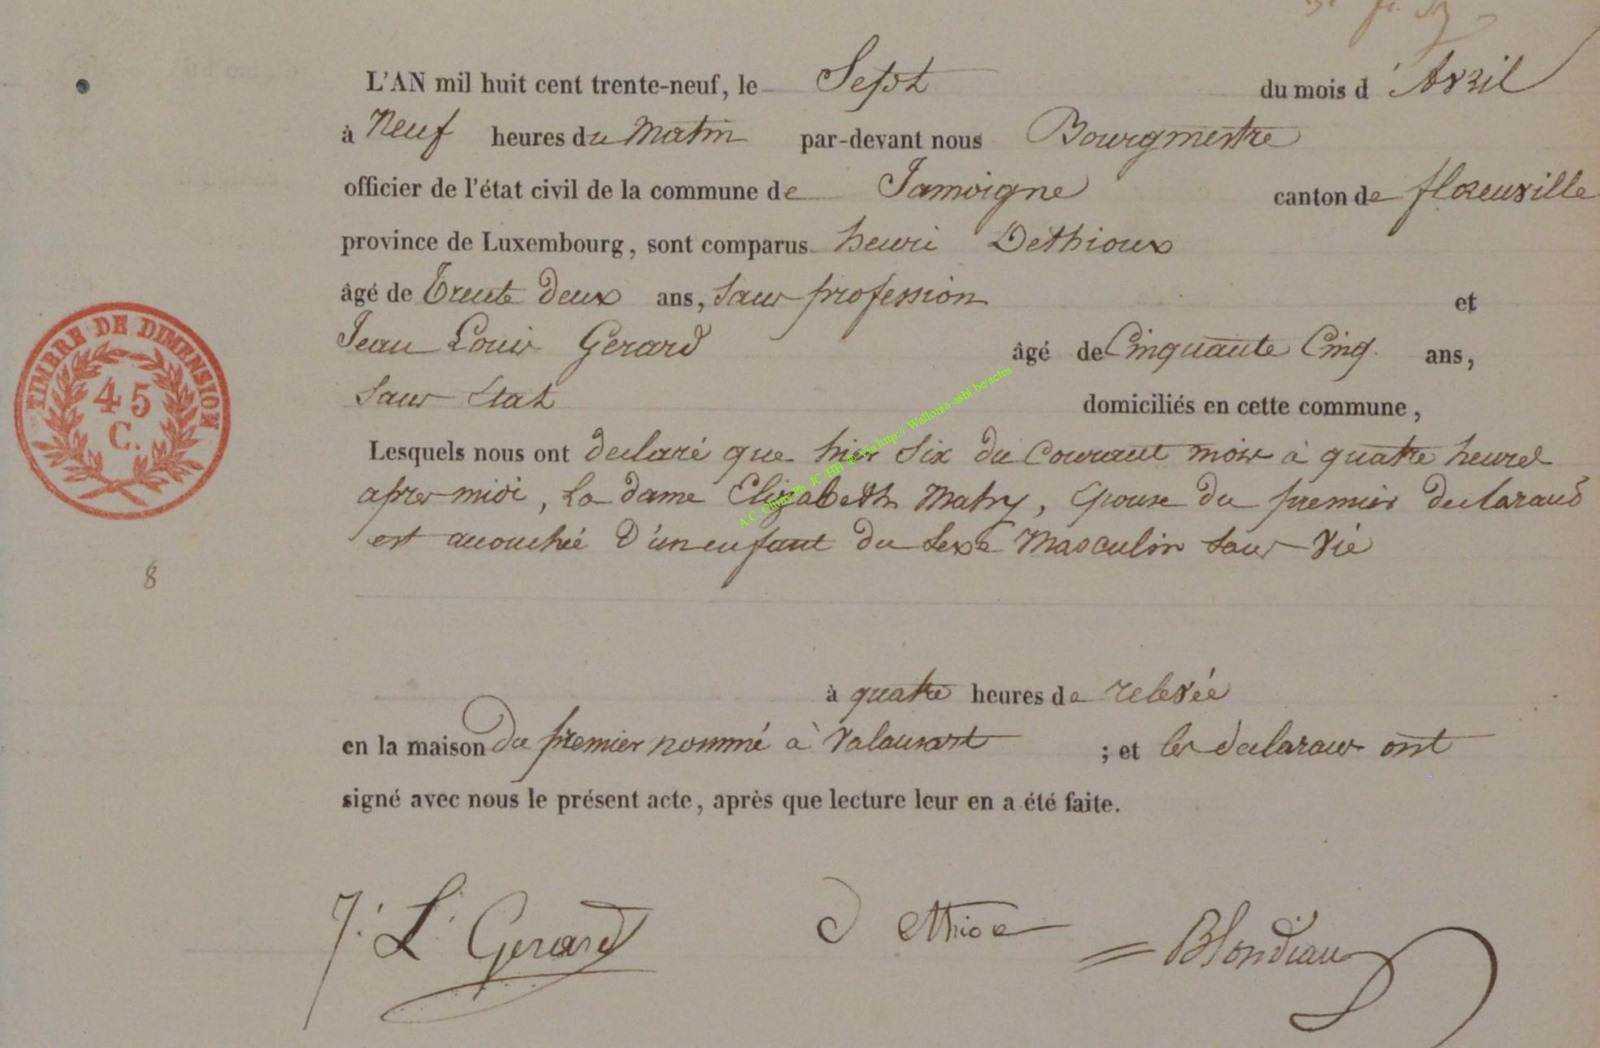 L'AN mil huit cent trente-neuf, le Sept du mois d'Avril
à Neuf heures du Matin par-devant nous Bourgmestre
officier de l'état civil de la commune de Jamoigne canton de florenville
province de Luxembourg, sont comparus henri Dethioux
âgé de Trente deux ans, sans profession et
Jean Louis Gerard âgé de Cinquante Cinq ans,
Sans Etat domiciliés en cette commune,
Lesquels nous ont declaré que hier six du Courant mois à quatre heures
apres midi, La dame Elizabeth Mahy, Epouse du premier declarant
est acouchée D'un enfant du Sexe Masculin sans Vie
à quatre heures de relevée
en la maison du premier nommé à Valansart ; et les declarans ont
signé avec nous le présent acte, après que lecture leur en a été faite.
J. L. Gerard Blondiau
TIMBRE DE DIMENSION
45
C.
8